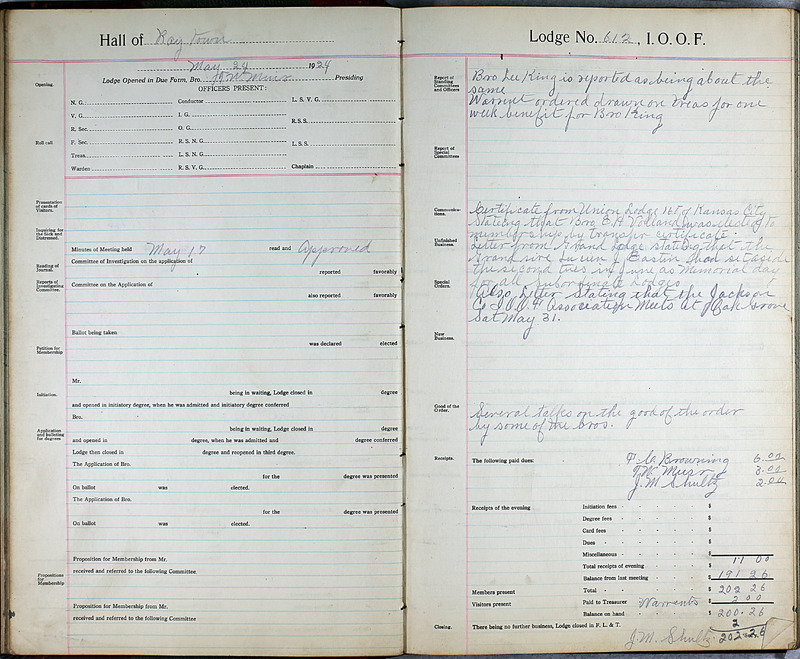 Hall of Ray Town
May 24 1924
Lodge Opened in Due Form, Bro. Presiding
OFFICERS PRESENT:
Opening.
N. G. Conductor L. S. V. G.
V. G. I. G.
R. Sec. O. G. R.S.S.
Roll call F. Sec. R. S. N. G. L.S.S.
Treas. L. S. N. G.
Warden R. S. V. G. Chaplain
Presentation of cards of Visitors.
Inquiring for the Sick and Distressed.
Minutes of Meeting held May 17 read and Approved
Reading of Journal.
Committee of Investigation on the application of
reported favorably
Reports of Investigating Committee.
Committee on the Application of
also reported favorably
Ballot being taken
was declared elected
Petition for Membership
Mr.
being in waiting, Lodge closed in degree
Initiation.
and opened in initiatory degree, when he was admitted and initiatory degree conferred
Bro.
being in waiting, Lodge closed in degree
Application and balloting for degrees
and opened in degree, when he was admitted and degree conferred
Lodge then closed in degree and reopened in third degree.
The Application of Bro.
for the degree was presented
On ballot was elected.
The Application of Bro.
for the degree was presented
On ballot was elected.
Proposition for Membership from Mr.
received and referred to the following Committee
Propositions for Membership
Proposition for Membership from Mr.
received and referred to the following Committee
Lodge No. 612, I. O. O. F.
Report of Standing Committees and Officers
Bro Lee King is reported as being about the
same
Warrent ordered drawn on treas for one
week benefit for Bro King
Report of Special Committees
Communications.
Certificate from Union Lodge 168 of Kansas City
Stating that Bro. E.H. was elected to
membership by transfer certificate.
Unfinished Business.
Letter from Grand Lodge stating that the
Grand sire Lucien J. Eastin had set aside
the second tues in June as Memorial day
Special Orders.
for all subordinate Lodges
Also Letter Stating that the Jackson
Co I.O.O.F Association Meets at Oak Grove
Sat May 31.
New Business.
Good of the Order.
Several talks on the good of the order
by some of the bros.
Receipts. The following paid dues: F. C. Browning 6.00
T.W. Muir 3.00
J.M Shultz 2.00
Receipts of the evening Initiation fees $
Degree fees $
Card fees $
Dues $
Miscellaneous $
Total receipts of evening 11 00
Balance from last meeting $ 191 26
Members present Total $ 202 26
Visitors present Paid to Treasurer Warrants $ 2 00
Balance on hand $ 200.26
Closing. There being no further business, Lodge closed in F. L. & T. 2
J.M. Shultz 202.26